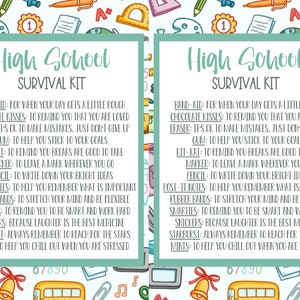 High School
SURVIVAL KIT
ID: FOR WHEN YOUR DAY GETS A LITTLE ROUGH
TE KISSES: TO REMIND YOU THAT YOU ARE LOVED
IT'S OK TO MAKE MISTAKES, JUST DON'T GIVE UP
GUM: TO HELP YOU STICK TO YOUR GOALS
TO REMIND YOU BREAKS ARE GOOD TO TAKE
KER: TO LEAVE A MARK WHEREVER YOU GO
PENCIL: TO WRITE DOWN YOUR BRIGHT IDEAS
OTES: TO HELP YOU REMEMBER WHAT IS IMPORTANT
ANDS: TO STRETCH YOUR MIND AND BE FLEXIBLE
TO REMIND YOU TO BE SMART AND WORK HARD
BECAUSE LAUGHTER IS THE BEST MEDICINE
ALWAYS REMEMBER TO REACH FOR THE STARS
TO HELP YOU CHILL OUT WHEN YOU ARE STRESSED
High School
SURVIVAL KIT
BAND-AID: FOR WHEN YOUR DAY GETS A L
CHOCOLATE KISSES: TO REMIND YOU THAT YO
ERASER: IT'S OK TO MAKE MISTAKES, JUST D
GUM: TO HELP YOU STICK TO YOUR
KIT-KAT: TO REMIND YOU BREAKS ARE G
MARKER: TO LEAVE A MARK WHEREV
PENCIL: TO WRITE DOWN YOUR BRI
POST-IT NOTES: TO HELP YOU REMEMBER WH
RUBBER BANDS: TO STRETCH YOUR MIND AN
SMARTIES: TO REMIND YOU TO BE SMART A
SNICKERS: BECAUSE LAUGHTER IS THE B
STARBURST: ALWAYS REMEMBER TO REACH
MINTS: TO HELP YOU CHILL OUT WHEN YOU